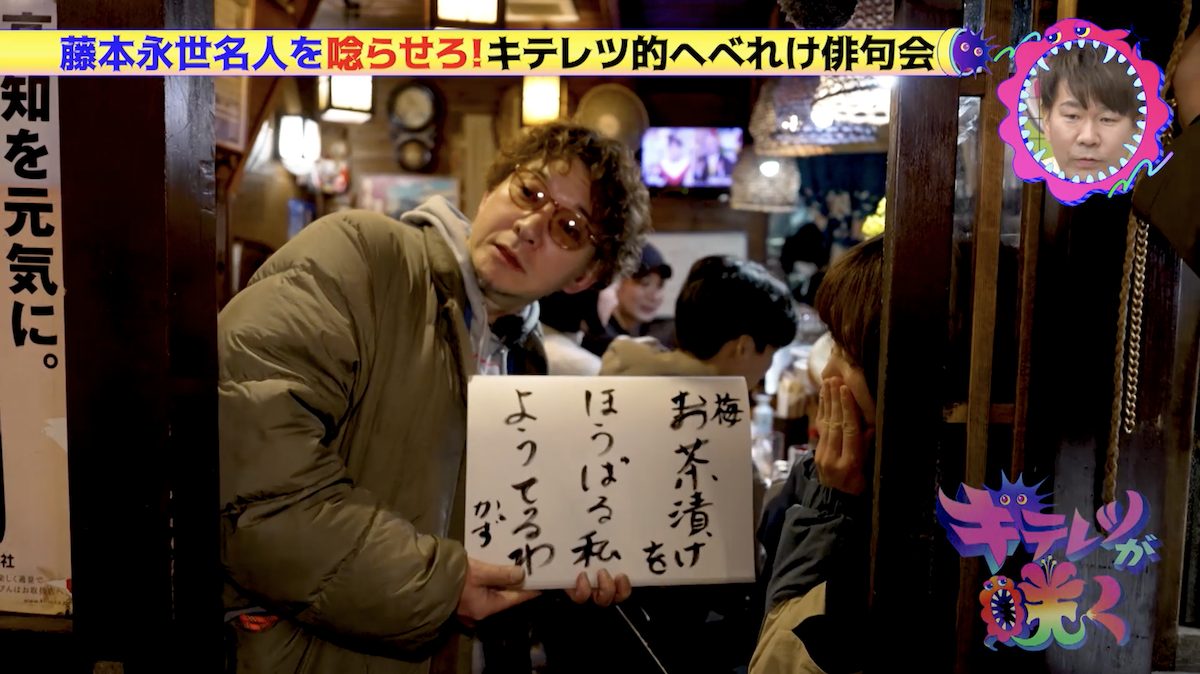 藤本永世名人を唸らせろ!キテレツ的へべれけ俳句会
知を元気に。
社
梅
お茶漬けを
ほうばる私
ようてるわ
かず
キテレツが
咲く